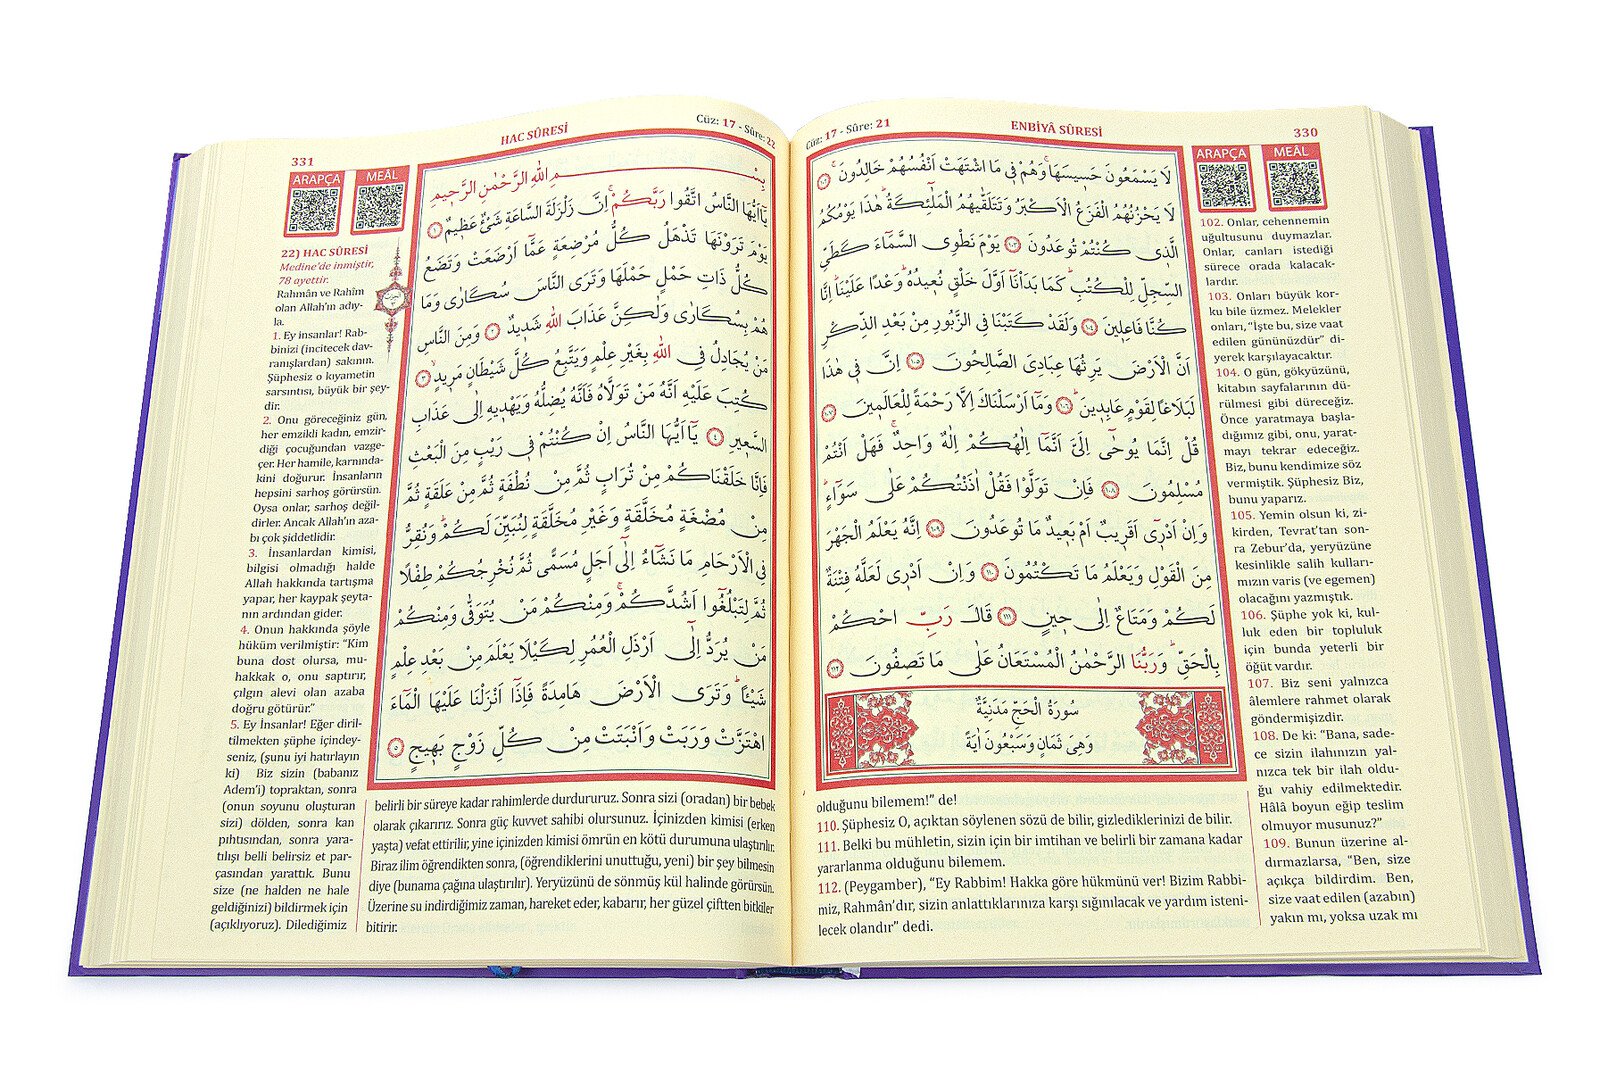 Cüz: 17 - Sûre: 21
ENBİYÂ SÛRESİ
330
ARAPÇA
MEÂL
لَا يَسْمَعُونَ حَسِيسَهَا وَهُمْ فِي مَا اشْتَهَتْ اَنْفُسُهُمْ خَالِدُونَ ١٠٢
لَا يَحْزُنُهُمُ الْفَزَعُ الْاَكْبَرُ وَتَتَلَقّٰيهُمُ الْمَلٰٓئِكَةُ هٰذَا يَوْمُكُمُ
الَّذِي كُنْتُمْ تُوعَدُونَ ١٠٣ يَوْمَ نَطْوِي السَّمَٓاءَ كَطَيِّ
السِّجِلِّ لِلْكُتُبِ كَمَا بَدَاْنَٓا اَوَّلَ خَلْقٍ نُعِيدُهُ وَعْدًا عَلَيْنَا اِنَّا
كُنَّا فَاعِلِينَ ١٠٤ وَلَقَدْ كَتَبْنَا فِي الزَّبُورِ مِنْ بَعْدِ الذِّكْرِ
اَنَّ الْاَرْضَ يَرِثُهَا عِبَادِيَ الصَّالِحُونَ ١٠٥ اِنَّ فِي هٰذَا
لَبَلَاغًا لِقَوْمٍ عَابِدِينَ ١٠٦ وَمَٓا اَرْسَلْنَاكَ اِلَّا رَحْمَةً لِلْعَالَمِينَ ١٠٧
قُلْ اِنَّمَا يُوحٰٓى اِلَيَّ اَنَّمَٓا اِلٰهُكُمْ اِلٰهٌ وَاحِدٌ فَهَلْ اَنْتُمْ
مُسْلِمُونَ ١٠٨ فَاِنْ تَوَلَّوْا فَقُلْ اٰذَنْتُكُمْ عَلٰى سَوَٓاءٍ
وَاِنْ اَدْرِٓي اَقَرِيبٌ اَمْ بَعِيدٌ مَا تُوعَدُونَ ١٠٩ اِنَّهُ يَعْلَمُ الْجَهْرَ
مِنَ الْقَوْلِ وَيَعْلَمُ مَا تَكْتُمُونَ ١١٠ وَاِنْ اَدْرِي لَعَلَّهُ فِتْنَةٌ
لَكُمْ وَمَتَاعٌ اِلٰى حِينٍ ١١١ قَالَ رَبِّ احْكُمْ
بِالْحَقِّ وَرَبُّنَا الرَّحْمٰنُ الْمُسْتَعَانُ عَلٰى مَا تَصِفُونَ ١١٢
سُورَةُ الْحَجِّ مَدَنِيَّةٌ
وَهِيَ ثَمَانٍ وَسَبْعُونَ اٰيَةً
102. Onlar, cehennemin
uğultusunu duymazlar.
Onlar, canları istediği
sürece orada kalacak-
lardır.
103. Onları büyük kor-
ku bile üzmez. Melekler
onları, “İşte bu, size vaat
edilen gününüzdür” di-
yerek karşılayacaktır.
104. O gün, gökyüzünü,
kitabın sayfalarının dü-
rülmesi gibi düreceğiz.
Önce yaratmaya başla-
dığımız gibi, onu, yarat-
mayı tekrar edeceğiz.
Biz, bunu kendimize söz
vermiştik. Şüphesiz Biz,
bunu yaparız.
105. Yemin olsun ki, zi-
kirden, Tevrat'tan son-
ra Zebur'da, yeryüzüne
kesinlikle salih kulları-
mızın varis (ve egemen)
olacağını yazmıştık.
106. Şüphe yok ki, kul-
luk eden bir topluluk
için bunda yeterli bir
öğüt vardır.
107. Biz seni yalnızca
âlemlere rahmet olarak
göndermişizdir.
108. De ki: “Bana, sade-
ce sizin ilahınızın yal-
nızca tek bir ilah oldu-
ğu vahiy edilmektedir.
Hâlâ boyun eğip teslim
olmuyor musunuz?”
109. Bunun üzerine al-
dırmazlarsa, “Ben, size
açıkça bildirdim. Ben,
size vaat edilen (azabın)
yakın mı, yoksa uzak mı
olduğunu bilemem!” de!
110. Şüphesiz O, açıktan söylenen sözü de bilir, gizlediklerinizi de bilir.
111. Belki bu mühletin, sizin için bir imtihan ve belirli bir zamana kadar
yararlanma olduğunu bilemem.
112. (Peygamber), “Ey Rabbim! Hakka göre hükmünü ver! Bizim Rabbi-
miz, Rahmân'dır, sizin anlattıklarınıza karşı sığınılacak ve yardım isteni-
lecek olandır” dedi.
331
HAC SÛRESİ
Cüz: 17 - Sûre: 22
ARAPÇA
MEÂL
بِسْمِ اللّٰهِ الرَّحْمٰنِ الرَّحِيمِ
يَٓا اَيُّهَا النَّاسُ اتَّقُوا رَبَّكُمْ اِنَّ زَلْزَلَةَ السَّاعَةِ شَيْءٌ عَظِيمٌ ١
يَوْمَ تَرَوْنَهَا تَذْهَلُ كُلُّ مُرْضِعَةٍ عَمَّٓا اَرْضَعَتْ وَتَضَعُ
كُلُّ ذَاتِ حَمْلٍ حَمْلَهَا وَتَرَى النَّاسَ سُكَارٰى وَمَا
هُمْ بِسُكَارٰى وَلٰكِنَّ عَذَابَ اللّٰهِ شَدِيدٌ ٢ وَمِنَ النَّاسِ
مَنْ يُجَادِلُ فِي اللّٰهِ بِغَيْرِ عِلْمٍ وَيَتَّبِعُ كُلَّ شَيْطَانٍ مَرِيدٍ ٣
كُتِبَ عَلَيْهِ اَنَّهُ مَنْ تَوَلَّاهُ فَاَنَّهُ يُضِلُّهُ وَيَهْدِيهِ اِلٰى عَذَابِ
السَّعِيرِ ٤ يَٓا اَيُّهَا النَّاسُ اِنْ كُنْتُمْ فِي رَيْبٍ مِنَ الْبَعْثِ
فَاِنَّا خَلَقْنَاكُمْ مِنْ تُرَابٍ ثُمَّ مِنْ نُطْفَةٍ ثُمَّ مِنْ عَلَقَةٍ ثُمَّ
مِنْ مُضْغَةٍ مُخَلَّقَةٍ وَغَيْرِ مُخَلَّقَةٍ لِنُبَيِّنَ لَكُمْ وَنُقِرُّ
فِي الْاَرْحَامِ مَا نَشَٓاءُ اِلٰٓى اَجَلٍ مُسَمًّى ثُمَّ نُخْرِجُكُمْ طِفْلًا
ثُمَّ لِتَبْلُغُٓوا اَشُدَّكُمْ وَمِنْكُمْ مَنْ يُتَوَفّٰى وَمِنْكُمْ
مَنْ يُرَدُّ اِلٰٓى اَرْذَلِ الْعُمُرِ لِكَيْلَا يَعْلَمَ مِنْ بَعْدِ عِلْمٍ
شَيْـًٔا وَتَرَى الْاَرْضَ هَامِدَةً فَاِذَٓا اَنْزَلْنَا عَلَيْهَا الْمَٓاءَ
اهْتَزَّتْ وَرَبَتْ وَاَنْبَتَتْ مِنْ كُلِّ زَوْجٍ بَهِيجٍ ٥
22) HAC SÛRESİ
Medine'de inmiştir,
78 ayettir.
Rahmân ve Rahîm
olan Allah'ın adıy-
la.
1. Ey insanlar! Rab-
binizi (incitecek dav-
ranışlardan) sakının.
Şüphesiz o kıyametin
sarsıntısı, büyük bir şey-
dir.
2. Onu göreceğiniz gün,
her emzikli kadın, emzir-
diği çocuğundan vazge-
çer. Her hamile, karnında-
kini doğurur. İnsanların
hepsini sarhoş görürsün.
Oysa onlar, sarhoş değil-
dirler. Ancak Allah'ın aza-
bı çok şiddetlidir.
3. İnsanlardan kimisi,
bilgisi olmadığı halde
Allah hakkında tartışma
yapar, her kaypak şeyta-
nın ardından gider.
4. Onun hakkında şöyle
hüküm verilmiştir: “Kim
buna dost olursa, mu-
hakkak o, onu saptırır,
çılgın alevi olan azaba
doğru götürür.”
5. Ey İnsanlar! Eğer diril-
tilmekten şüphe içindey-
seniz, (şunu iyi hatırlayın
ki) Biz sizin (babanız
Adem'i) topraktan, sonra
(onun soyunu oluşturan
sizi) dölden, sonra kan
pıhtısından, sonra yara-
tılışı belli belirsiz et par-
çasından yarattık. Bunu
size (ne halden ne hale
geldiğinizi) bildirmek için
(açıklıyoruz). Dilediğimiz
belirli bir süreye kadar rahimlerde durdururuz. Sonra sizi (oradan) bir bebek
olarak çıkarırız. Sonra güç kuvvet sahibi olursunuz. İçinizden kimisi (erken
yaşta) vefat ettirilir, yine içinizden kimisi ömrün en kötü durumuna ulaştırılır.
Biraz ilim öğrendikten sonra, (öğrendiklerini unuttuğu, yeni) bir şey bilmesin
diye (bunama çağına ulaştırılır). Yeryüzünü de sönmüş kül halinde görürsün.
Üzerine su indirdiğimiz zaman, hareket eder, kabarır, her güzel çiftten bitkiler
bitirir.